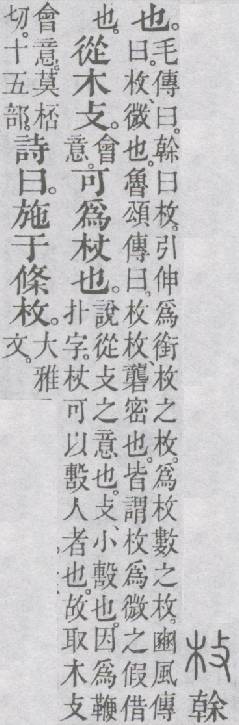 枚榦
也。毛傳曰。榦曰枚。引伸爲銜枚之枚。爲枚數之枚。豳風傳
曰。枚、微也。魯頌傳曰。枚枚、礱密也。皆謂枚爲微之假借
也。從木攴。會意。可爲杖也。說從攴之意也。攴、小毄也。因爲鞭
扑字。杖可以毄人者也。故取木攴
會意。莫桮
切。十五部。詩曰。施于條枚。大雅
文。